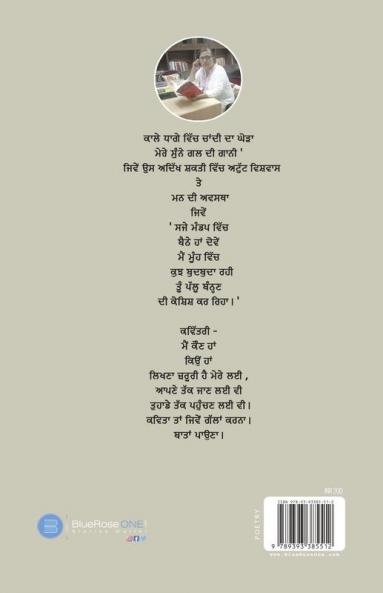 ਕਾਲੇ ਧਾਗੇ ਵਿੱਚ ਚਾਂਦੀ ਦਾ ਘੋੜਾ
ਮੇਰੇ ਸੁੰਨੇ ਗਲ ਦੀ ਗਾਨੀ '
ਜਿਵੇਂ ਉਸ ਅਦਿੱਖ ਸ਼ਕਤੀ ਵਿੱਚ ਅਟੁੱਟ ਵਿਸ਼ਵਾਸ
ਤੇ
ਮਨ ਦੀ ਅਵਸਥਾ
ਜਿਵੇਂ
' ਸਜੇ ਮੰਡਪ ਵਿੱਚ
ਬੈਠੇ ਹਾਂ ਦੋਵੇਂ
ਮੈਂ ਮੂੰਹ ਵਿੱਚ
ਕੁਝ ਬੁਦਬੁਦਾ ਰਹੀ
ਤੂੰ ਪੱਲੂ ਬੰਨ੍ਹਣ
ਦੀ ਕੋਸ਼ਿਸ਼ ਕਰ ਰਿਹਾ। '
ਕਵਿੱਤਰੀ -
ਮੈਂ ਕੌਣ ਹਾਂ
ਕਿਉਂ ਹਾਂ
ਲਿਖਣਾ ਜ਼ਰੂਰੀ ਹੈ ਮੇਰੇ ਲਈ ,
ਆਪਣੇ ਤੱਕ ਜਾਣ ਲਈ ਵੀ
ਤੁਹਾਡੇ ਤੱਕ ਪਹੁੰਚਣ ਲਈ ਵੀ।
ਕਵਿਤਾ ਤਾਂ ਜਿਵੇਂ ਗੱਲਾਂ ਕਰਨਾ।
ਬਾਤਾਂ ਪਾਉਣਾ।
INR 200
POETRY
ISBN 978-93-93385-51-2
9 789393 385512
www.BlueRoseOne.com
BlueRoseONE
Stories Matter